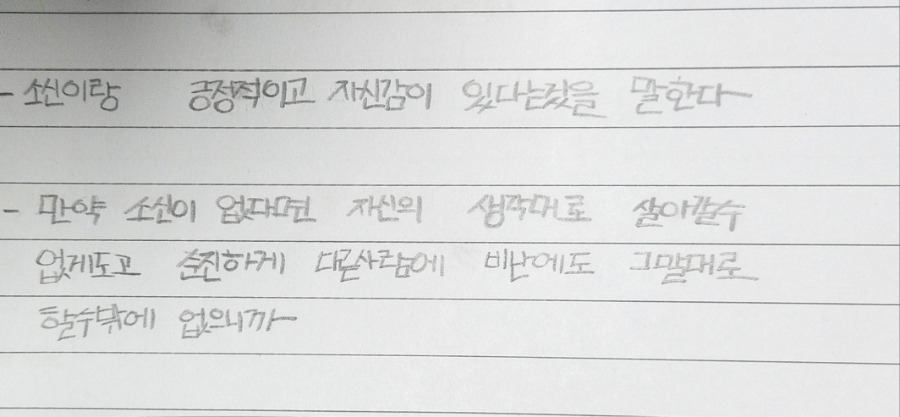 - 소신이랑 긍정적이고 자신감이 있다는것을 말한다
- 만약 소신이 없다면 자신의 생각대로 살아갈수
없게도고 순진하게 다른사람에 비난에도 그말대로
할수밖에 없으니까